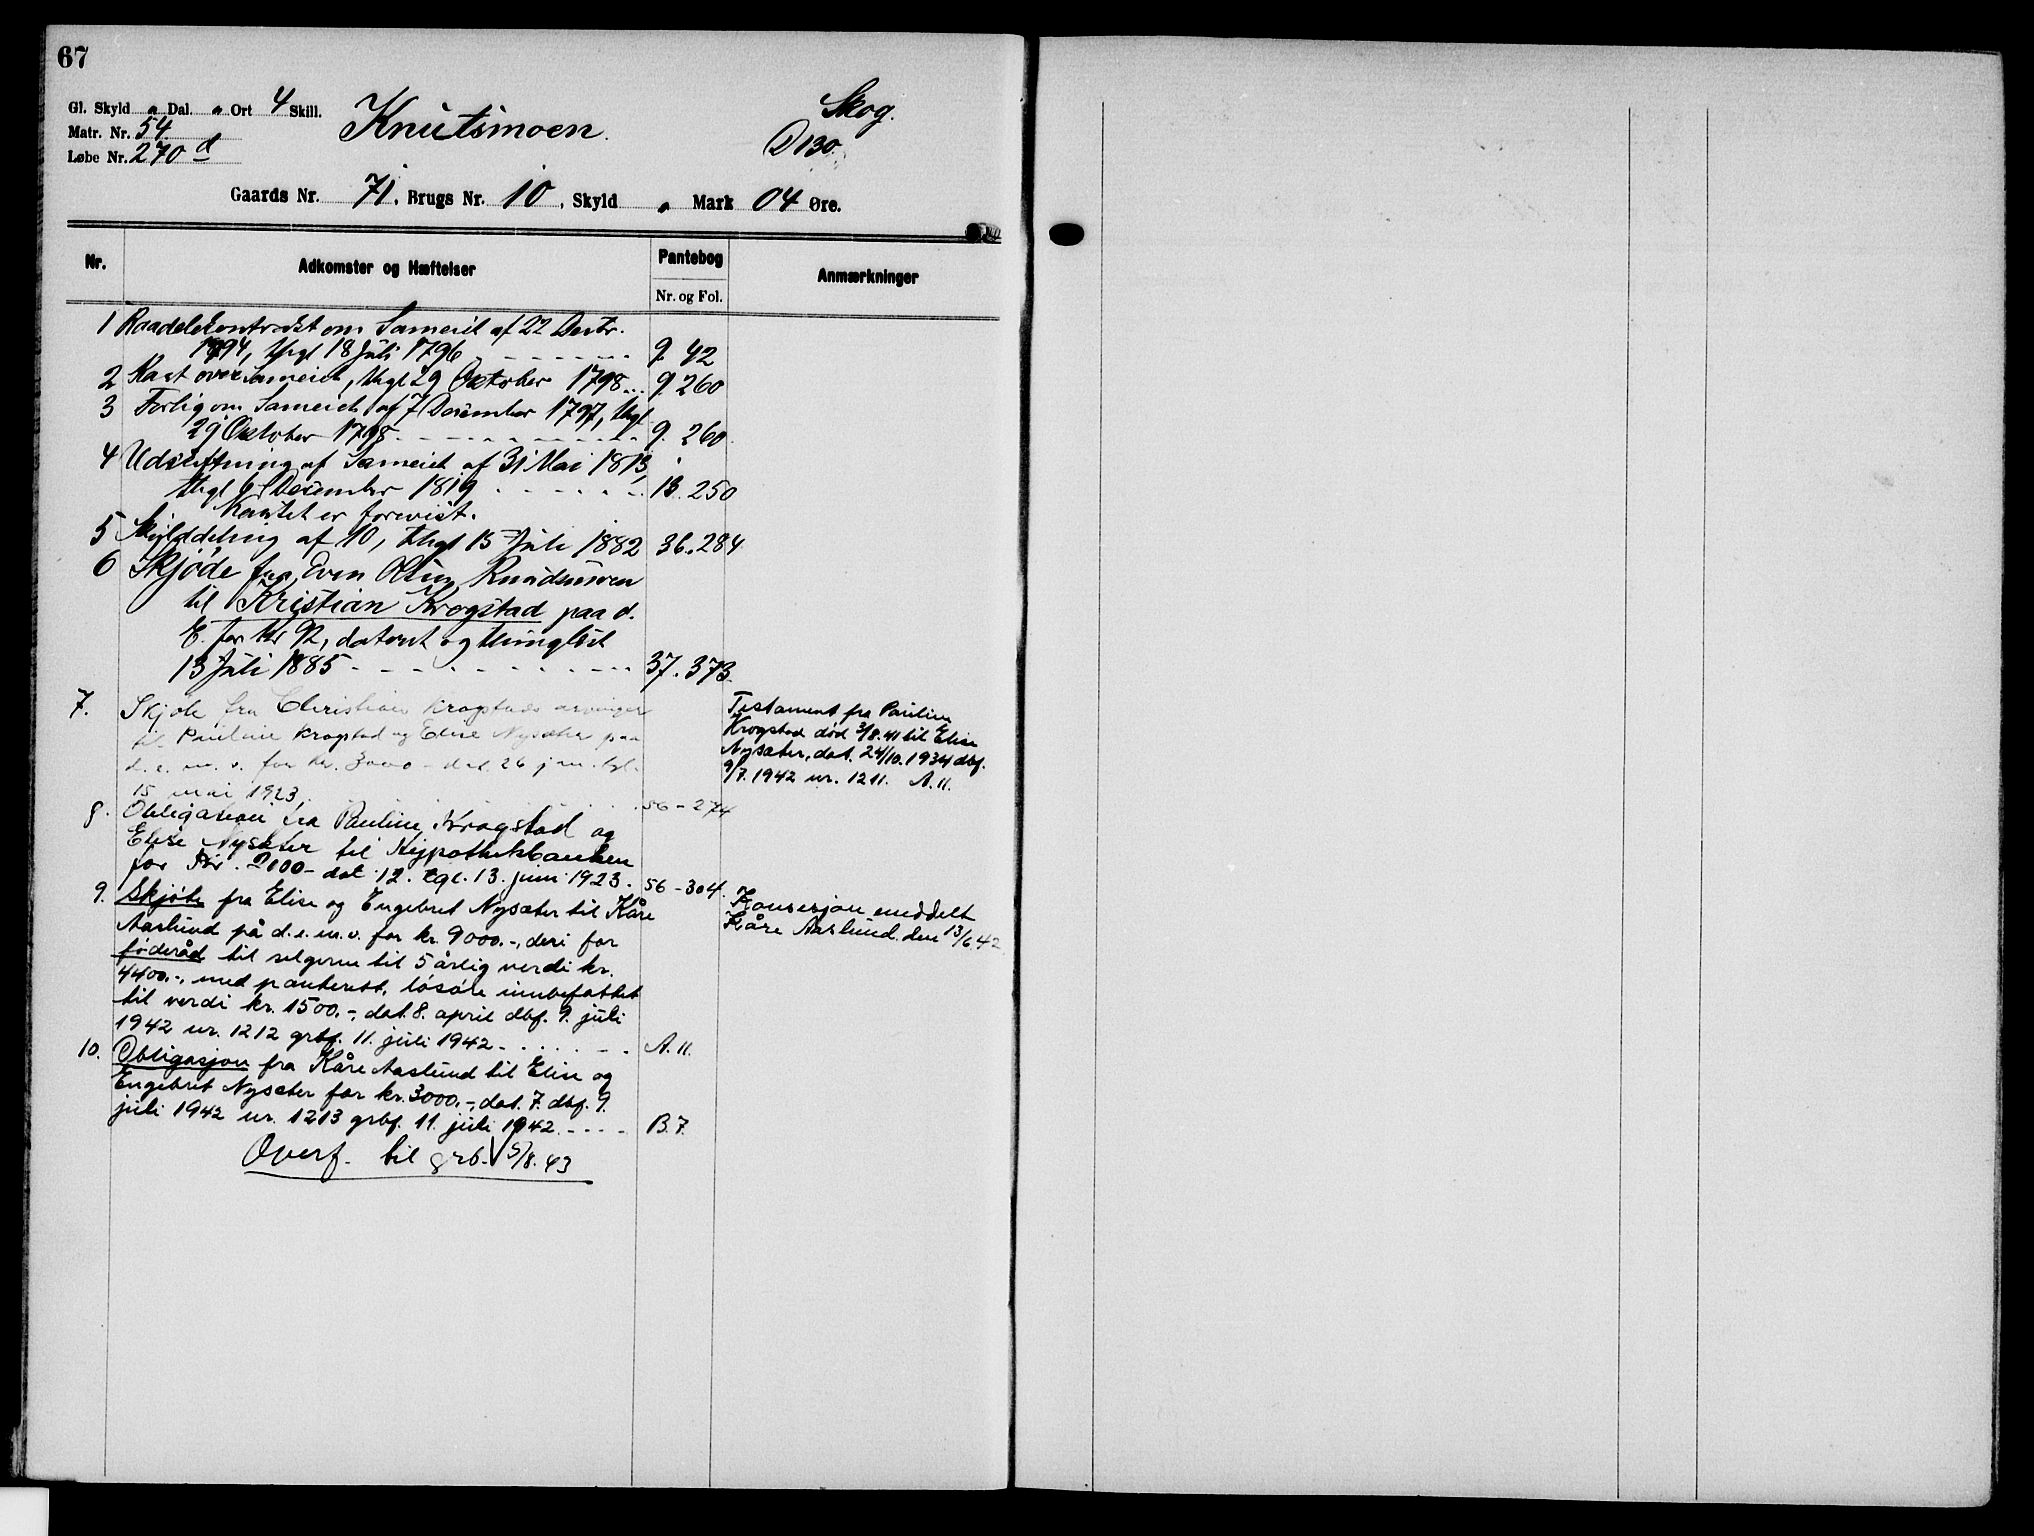 67
Gl. Skyld " Dal. " Ort 4 Skill.
Matr. Nr. 54
Løbe Nr. 270 d
Knutsmoen
Skog.
D 130
Gaards Nr. 71, Brugs Nr. 10, Skyld " Mark 04 Øre.
Nr.
Adkomster og Hæftelser
Pantebog
Nr. og Fol.
Anmærkninger
1 Raadelekontrakt om Sameiet af 22 Decbr.
1794, thgl 18 Juli 1796 9. 42
2 Kart over Sameiet, thgl 29 Oktober 1798 9. 260
3 Forlig om Sameiet af 7 December 1797, thgl
29 Oktober 1798 9. 260
4 Udskiftning af Sameiet af 31 Mai 1813,
thgl December 1819 13. 250
Kartet er forevist.
5 Skylddeling af 10, thgl 15 Juli 1882 36. 284
6 Skjøde fra Even Olsen Knudsmoen
til Kristian Krogstad paa d.
E. for Kr 92, datert og thinglæst
13 Juli 1885 37. 373
7. Skjøte fra Christian Krogstads arvinger
til Pauline Krogstad og Elise Nysæter paa
d. e. m. v. for kr. 3000 - dat. 26 jan. tgl.
15 mai 1923 56 - 274
Testament fra Pauline
Krogstad død 3/8.41 til Elise
Nysæter, dat. 24/10.1934 dbf.
9/7. 1942 nr. 1211. A. 11.
8. Obligation fra Pauline Krogstad og
Elise Nysæter til Hypothekbanken
for Kr. 2000 - dat. 12. tgl. 13. juni 1923. 56 - 304.
9. Skjøte fra Elise og Engebret Nysæter til Kåre
Aaslund på d. e. m. v. for kr. 9000.-, deri for
føderåd til selgerne til 5 årlig verdi kr.
4400.-, med panterett, løsøre innbefattet
til verdi kr. 1500.-, dat. 8. april dbf. 9. juli
1942 nr. 1212 grbf. 11. juli 1942 A. 11.
Konsesjon meddelt
Kåre Aaslund den 13/6.42
10. Obligasjon fra Kåre Aaslund til Elise og
Engebret Nysæter for kr. 3000.-, dat. 7. dbf. 9.
juli 1942 nr. 1213 grbf. 11. juli 1942. B. 7.
Overf. til grb. V 5/8. 43